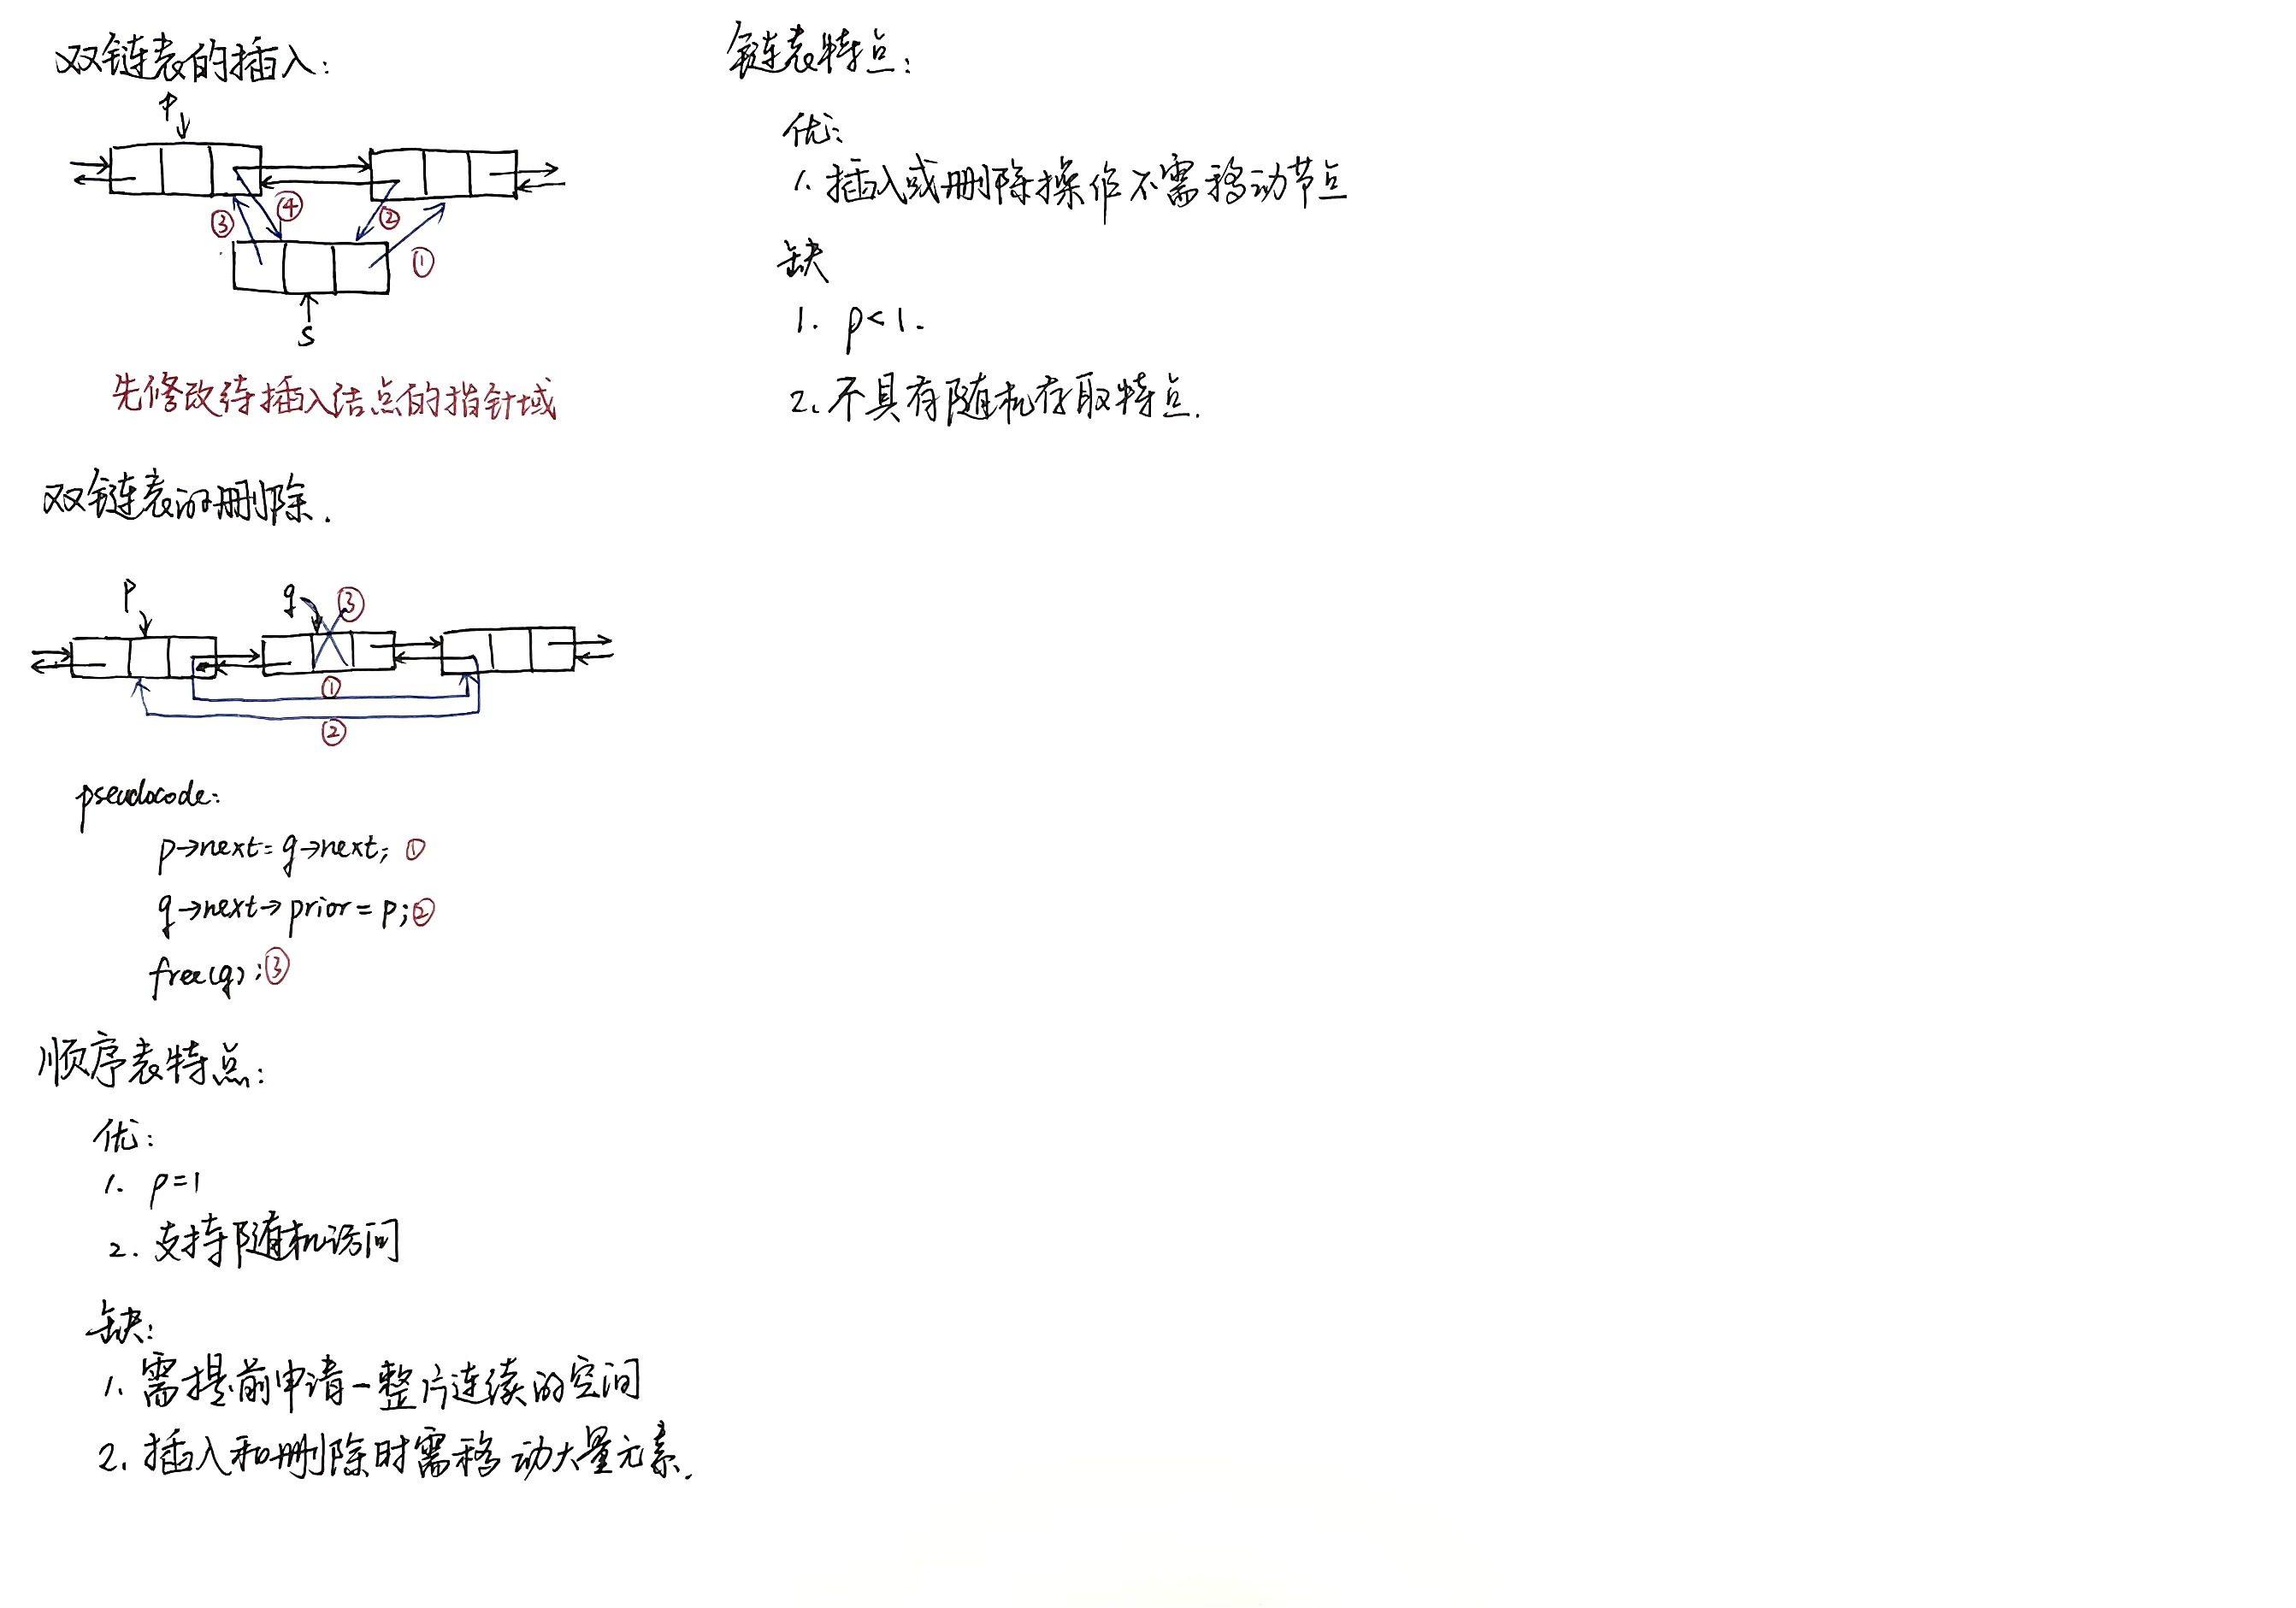 双链表的插入:
p
③ ④ ② ①
s
先修改待插入结点的指针域
双链表的删除.
p q ③
①
②
pseudocode:
p→next=q→next; ①
q→next→prior=p; ②
free(q); ③
顺序表特点:
优:
1. ρ=1
2. 支持随机访问
缺:
1. 需提前申请一整片连续的空间
2. 插入和删除时需移动大量元素.
链表特点:
优:
1. 插入或删除操作不需移动节点
缺
1. ρ<1.
2. 不具有随机存取特点.